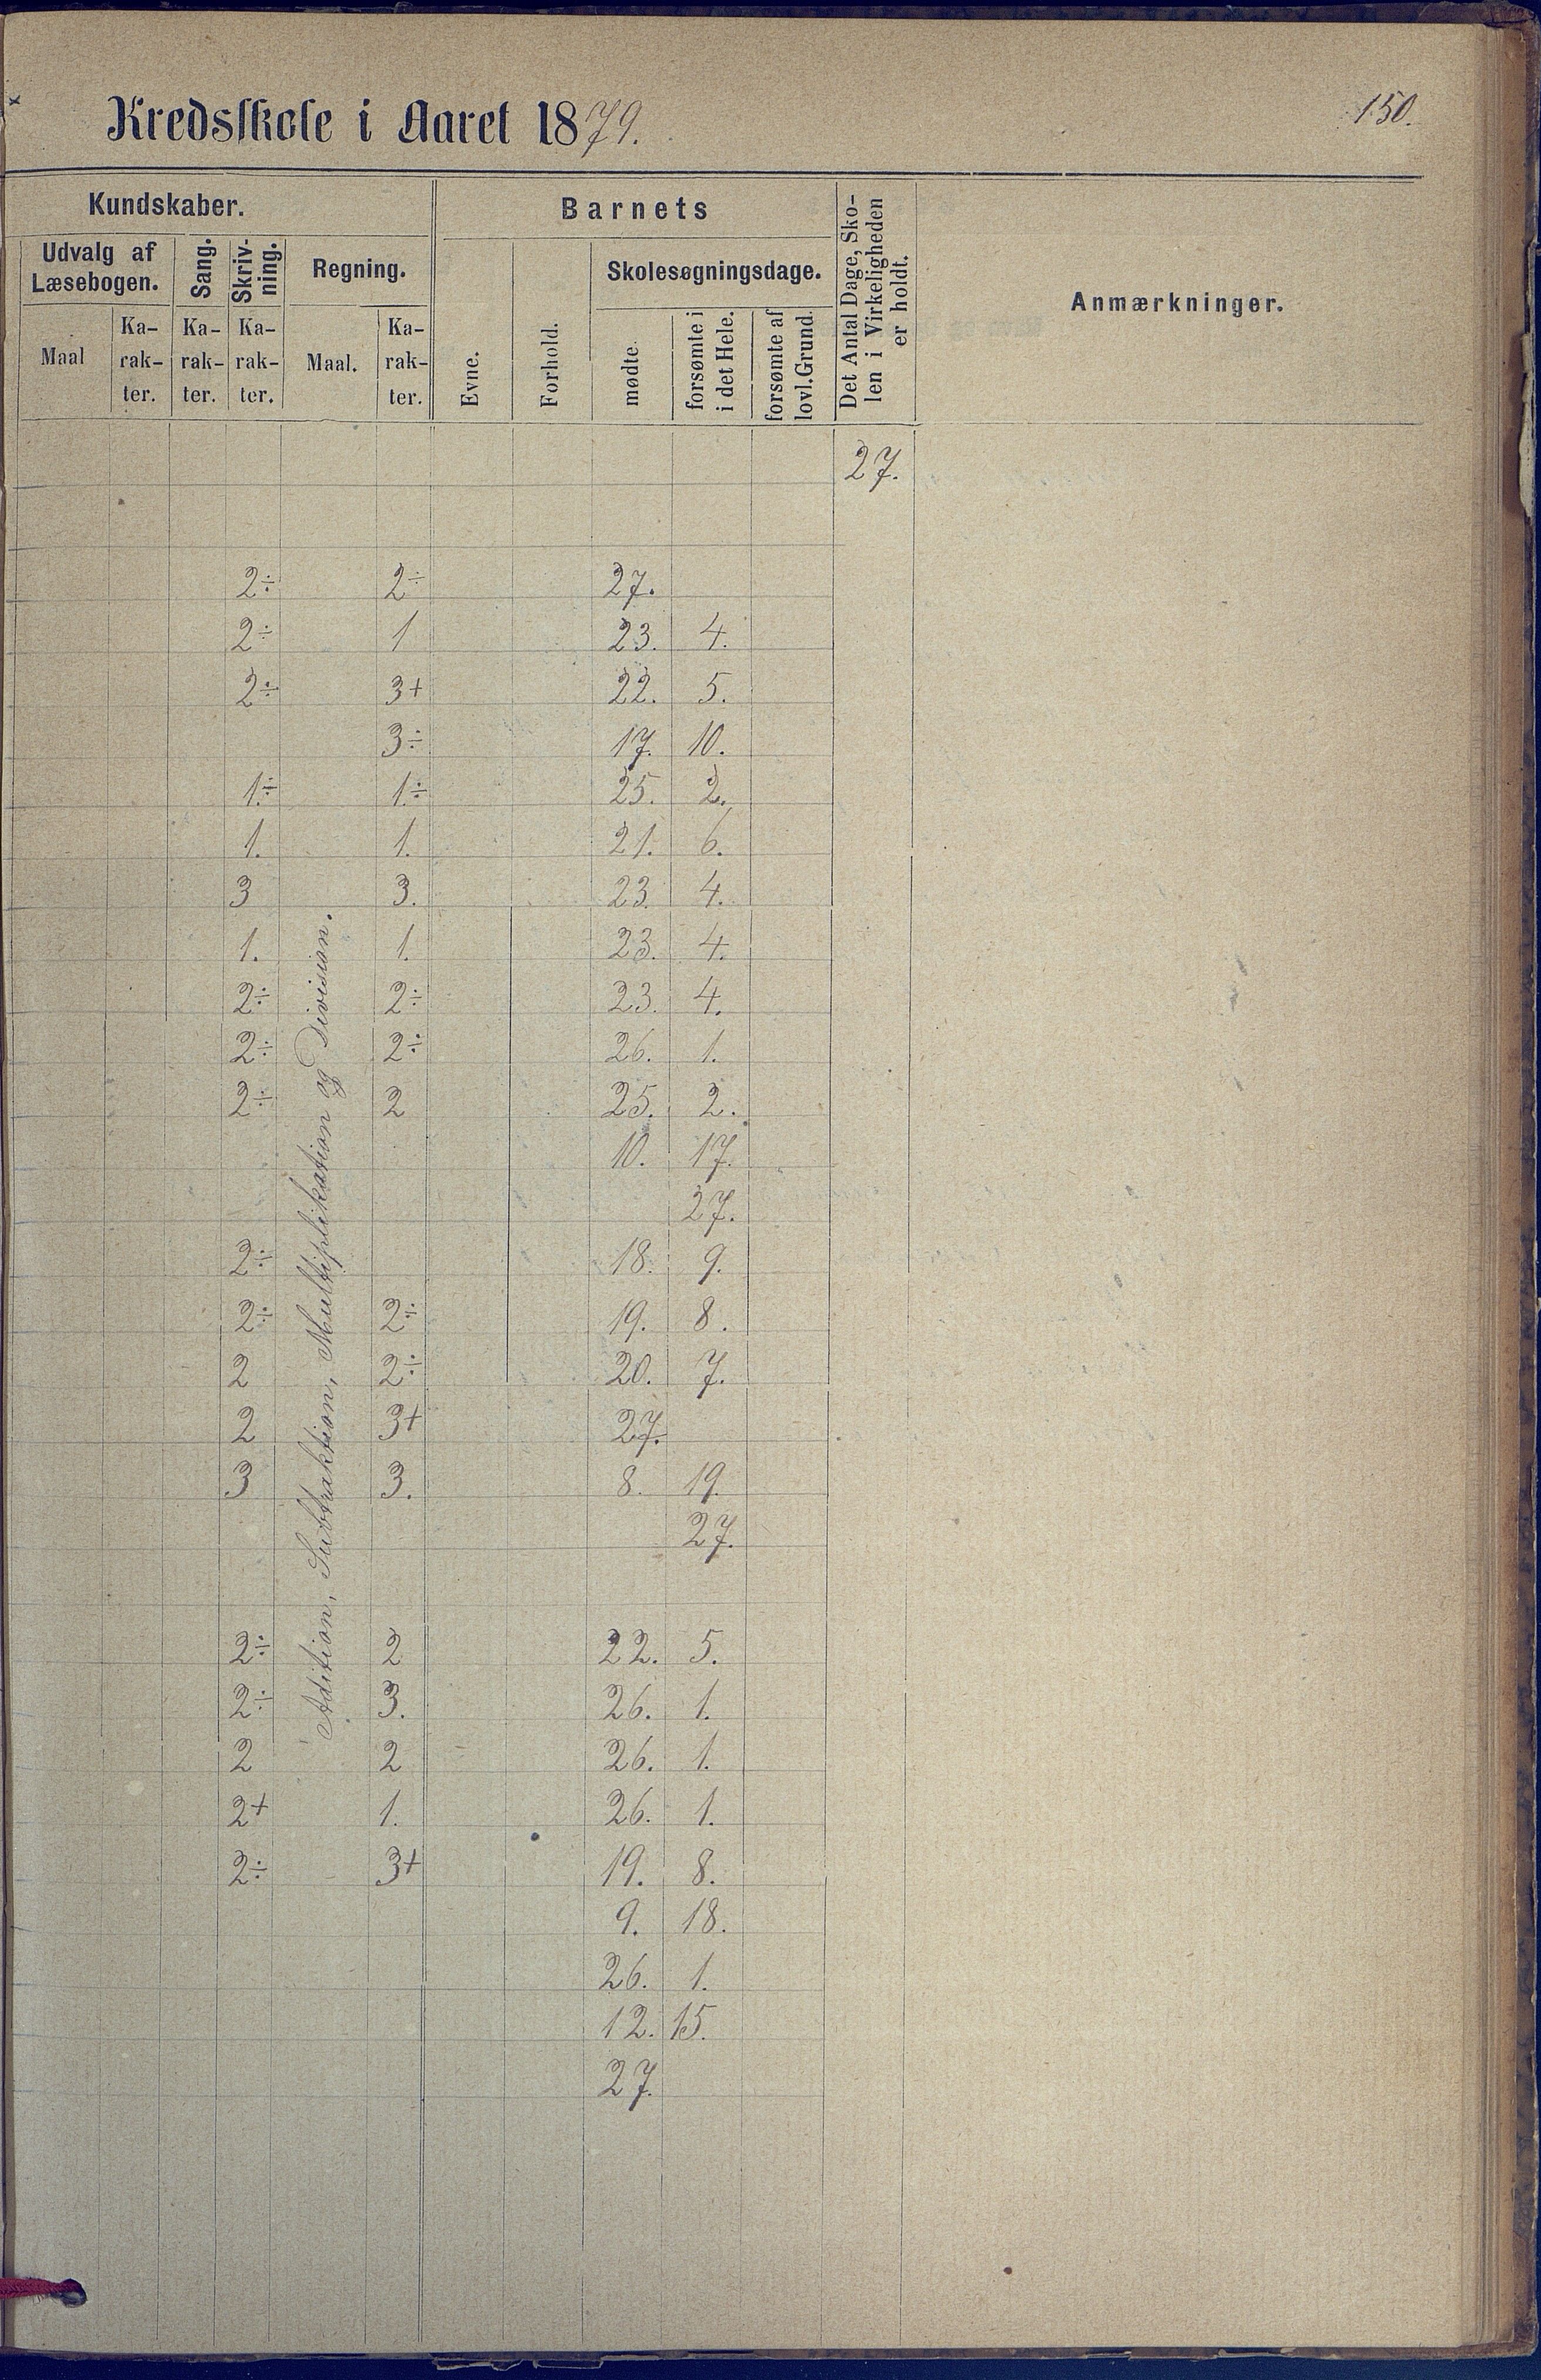 Kredsskole i Aaret 1879.
150.
Kundskaber.
Barnets
Det Antal Dage, Sko-
len i Virkeligheden
er holdt.
Anmærkninger.
Udvalg af
Læsebogen.
Sang.
Skriv-
ning.
Regning.
Evne.
Forhold.
Skolesøgningsdage.
Maal
Ka-
rak-
ter.
Ka-
rak-
ter.
Ka-
rak-
ter.
Maal.
Ka-
rak-
ter.
mødte.
forsømte i
i det Hele.
forsømte af
lovl. Grund.
27.
2÷ 2÷ 27.
2÷ 1 23. 4.
2÷ 3+ 22. 5.
3÷ 17. 10.
1.÷ 1.÷ 25. 2.
1. 1. 21. 6.
3 3. 23. 4.
1. 1. 23. 4.
2÷ 2÷ 23. 4.
2÷ 2÷ 26. 1.
2÷ 2 25. 2.
10. 17.
27.
2÷ 18. 9.
2÷ 2÷ 19. 8.
2 2÷ 20. 7.
2 3+ 27.
3 3. 8. 19.
27.
2÷ 2 22. 5.
2÷ 3. 26. 1.
2 2 26. 1.
2+ 1. 26. 1.
2÷ 3+ 19. 8.
9. 18.
26. 1.
12. 15.
27.
Adition, Subtraktion, Multiplikation og Division.